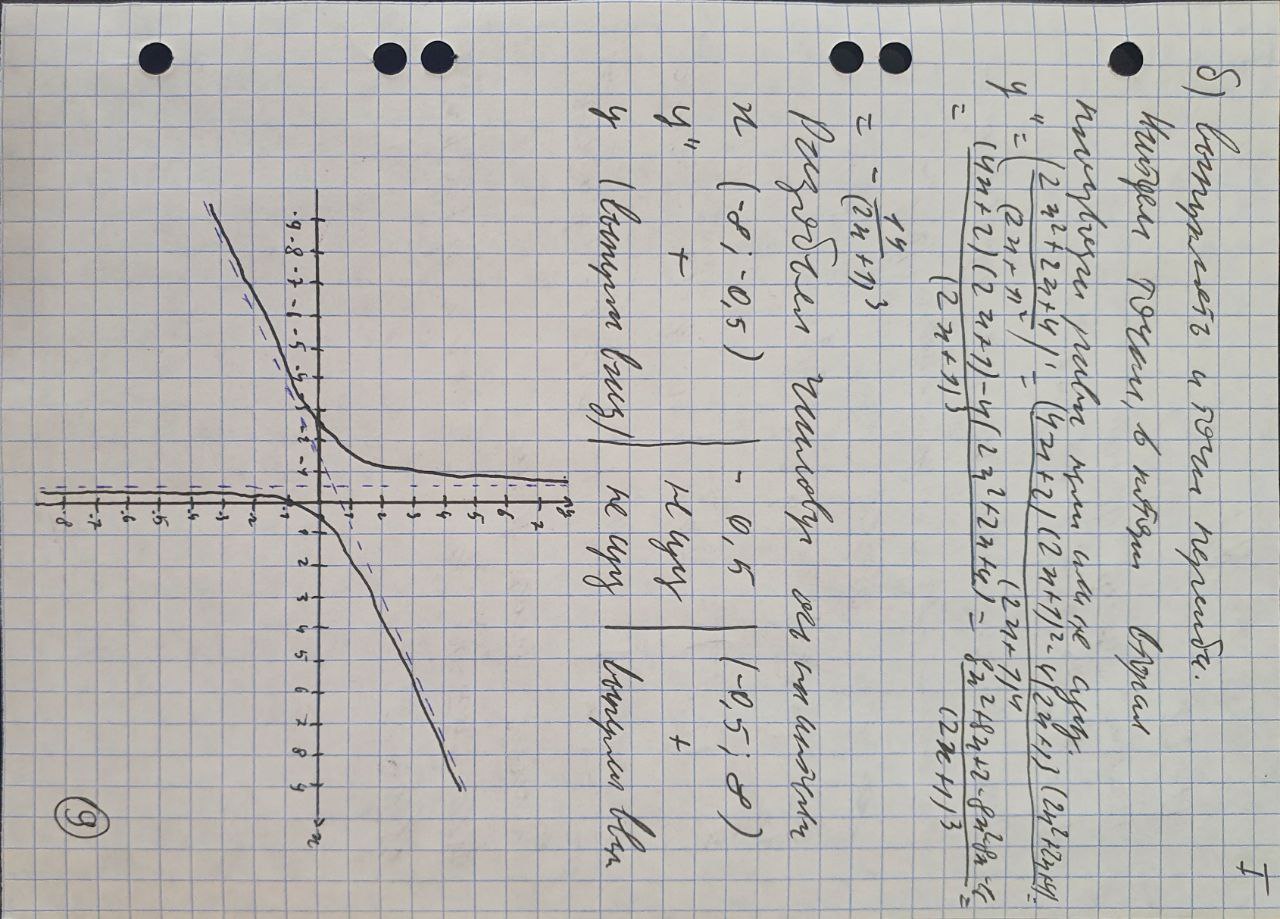 I
б) выпуклость и точки перегиба.
Найдем точки, в которых вторая
производная равна нулю или не сущ.
y'' = ((2x²+2x+4)/(2x+1)²)' = ((4x+2)(2x+1)²-4(2x+1)(2x²+2x+4))/(2x+1)⁴ =
= ((4x+2)(2x+1)-4(2x²+2x+4))/(2x+1)³ = (8x²+8x+2-8x²-8x-16)/(2x+1)³ =
= -14/(2x+1)³
Разобьем числовую ось на интервалы
x (-∞; -0,5) | -0,5 | (-0,5; ∞)
y'' + | не сущ | +
y (выпукла вниз) | не сущ | выпукла вверх
y
7
6
5
4
3
2
1
-9 -8 -7 -6 -5 -4 -3 -2 -1 1 2 3 4 5 6 7 8 9 x
-1
-2
-3
-4
-5
-6
-7
-8
9